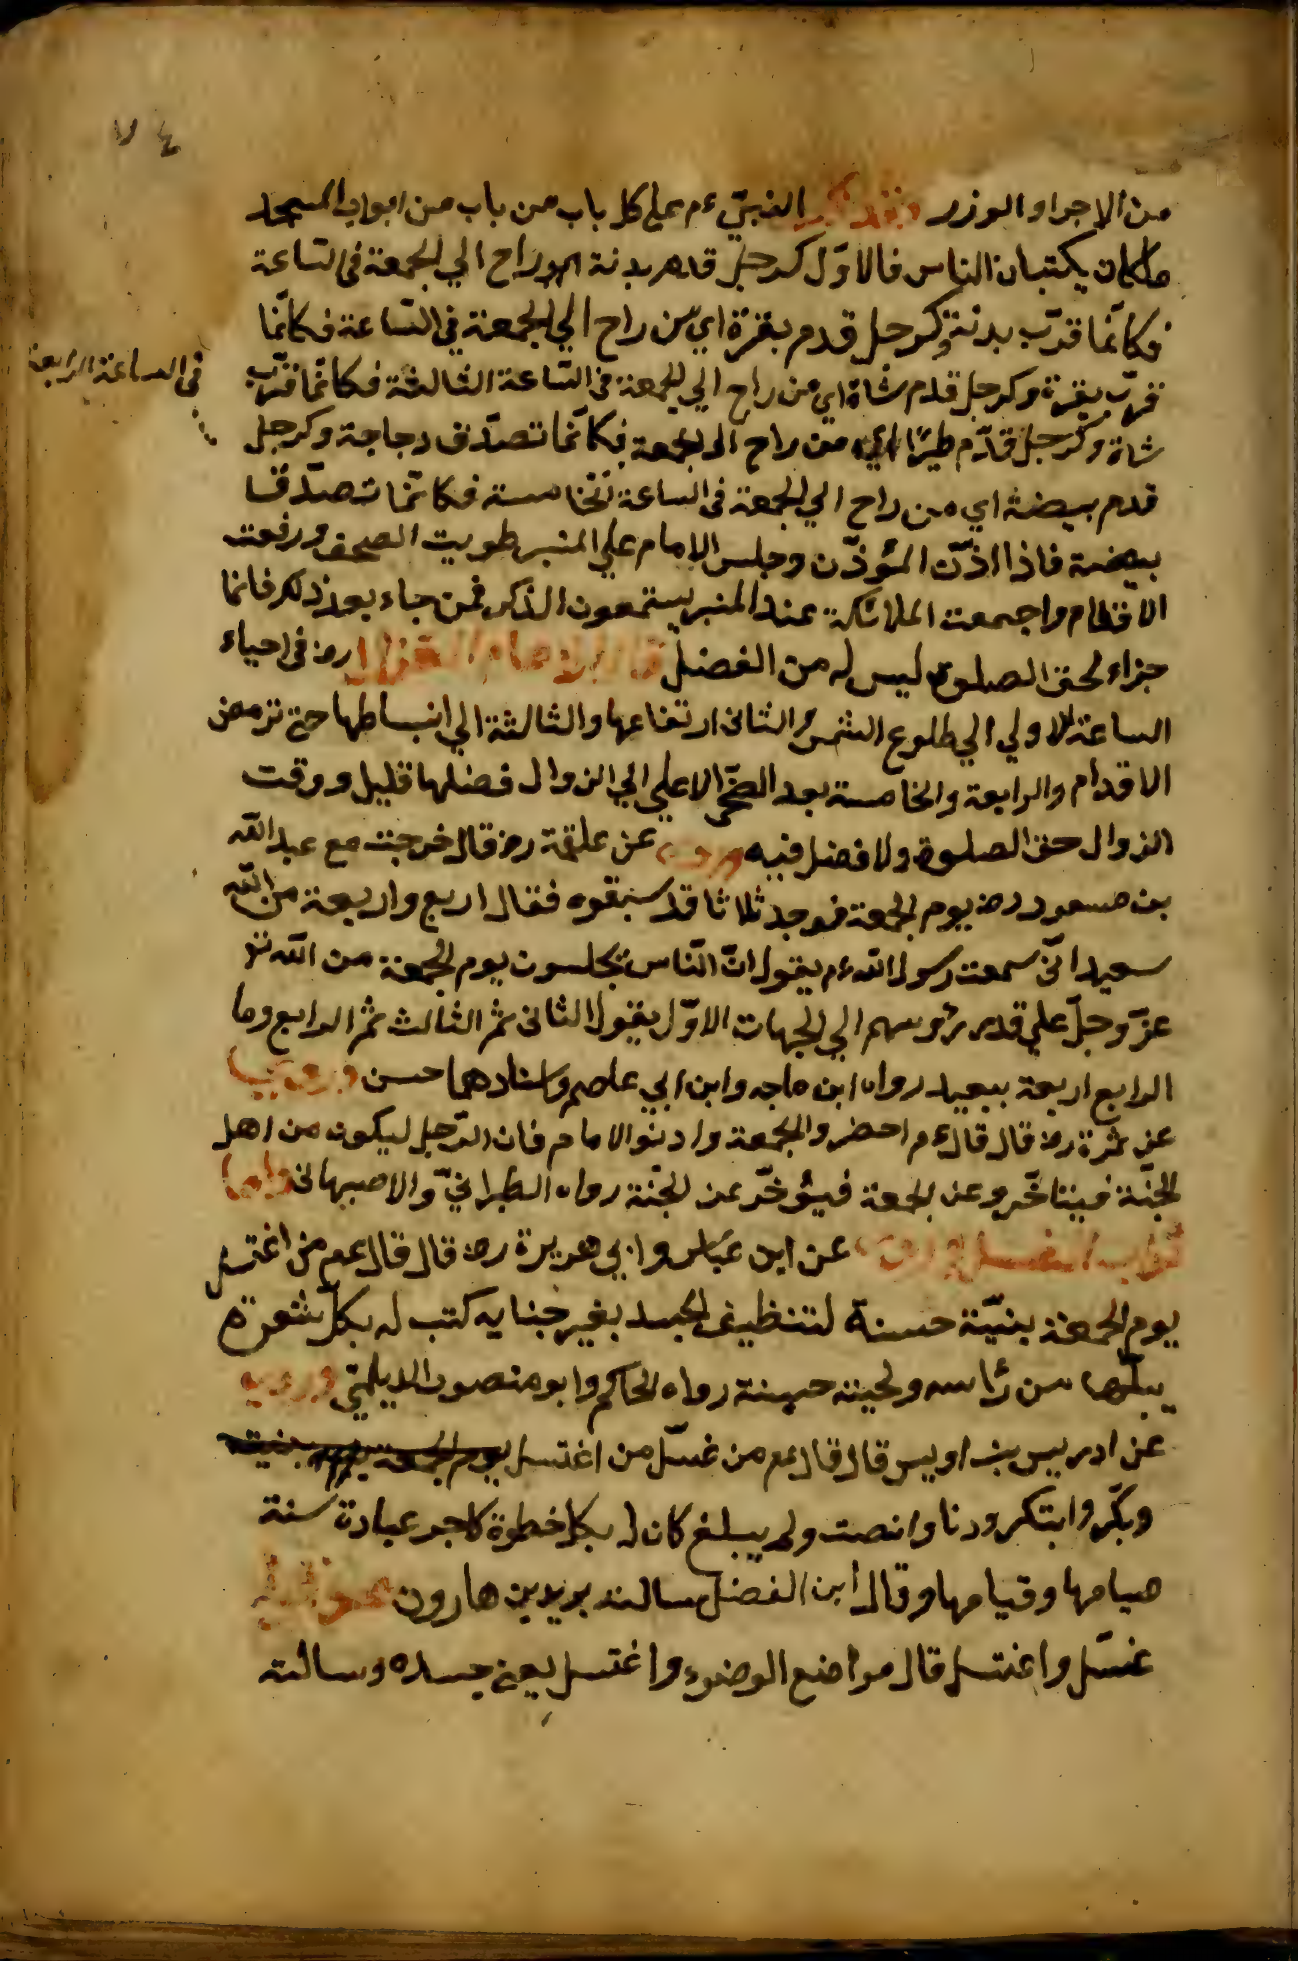 ٧٤
من الاجر او الوزر النبيّ ءم علي كل باب من باب من ابواب المسجد
ملكان يكتبان الناس فالاوّل كرجل قدم بدنة راح الي الجمعة في السّاعة
فكانّما قرّب بدنة وكرجل قدم بقرة اي من راح الي الجمعة في السّاعة فكانّما
قرّب بقرة وكرجل قدم شاة اي من راح الي الجمعة في السّاعة الثالثة فكانّما قرّب
في الساعة الرابعة
شاة وكرجل قدّم طيرًا اي من راح الي الجمعة فكانّما تصدّق دجاجة وكرجل
قدم بيضة اي من راح الي الجمعة في الساعة الخامسة فكانّما تصدّق
بيضة فاذا اذّن المؤذّن وجلس الامام علي المنبر طويت الصحف ورفعت
الاقلام واجمعت الملائكة عند المنبر يستمعون الذكر فمن جاء بعد ذلك فانما
جزاء لحق الصلوة ليس له من الفضل قال الامام الغزالي رح في احياء
الساعة الاولي الي طلوع الشمس والثاني ارتفاعها والثالثة الي انبساطها حتي ترمض
الاقدام والرابعة والخامسة بعد الضحي الاعلي الي الزوال فضلها قليل ووقت
الزوال حق الصلوة ولا فضل فيه وروي عن علقمة رض قال خرجت مع عبد الله
بن مسعود رض يوم الجمعة فوجد ثلاثا قد سبقوه فقال اربع واربعة من الله
سعيد انّي سمعت رسول الله ءم يقول انّ النّاس يجلسون يوم الجمعة من الله تع
عزّ وجلّ علي قدر الي الجهات الاوّل يقول الثاني ثم الثالث ثم الرابع وما
الرابع اربعة ببعيد رواه ابن ماجه وابن ابي عاصم واسنادهما حسن وروي
عن ثمرة رض قال قال ءم احضروا الجمعة وادنوا الامام فان الرّجل ليكون من اهل
الجنّة فيتاخّر وعن الجمعة فيؤخّر عن الجنّة رواه الطبرانيّ والاصبهاني واما
ثواب الغسل وروي عن ابن عبّاس وابي هريرة رض قال قال عم من اغتسل
يوم الجمعة بنيّة حسنة لتنظيف الجسد بغير جنايه كتب له بكلّ شعرة
يبلّها من رأسه ولحيته حسنة رواه الحاكم وابو منصور الديلميّ وروي
عن ادريس بن اويس قال قال عم من غسّل من اغتسل
وبكّر وابتكر ودنا وانصت ولم يبلغ كان له بكل خطوة كاجر عبادة سنة
صيامها وقيامها وقال ابن الفضل سالت يزيد بن هارون عن قوله
غسّل واغتسل قال مواضع الوضوء واغتسل يعني جسده وسالته